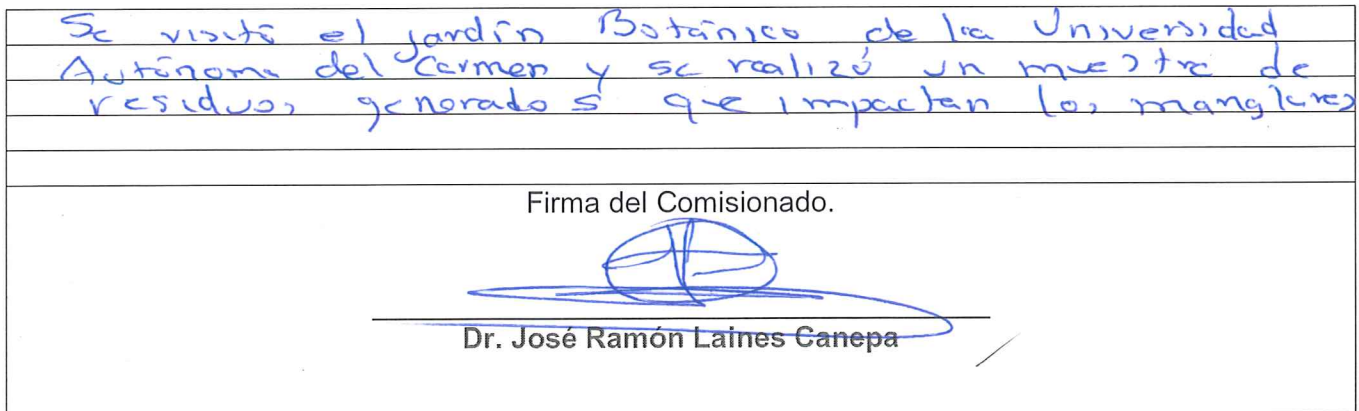 Se visitó el jardín Botánico de la Universidad
Autónoma del Carmen y se realizó un muestre de
residuos generados que impactan los manglares
Firma del Comisionado.
Dr. José Ramón Laines Canepa